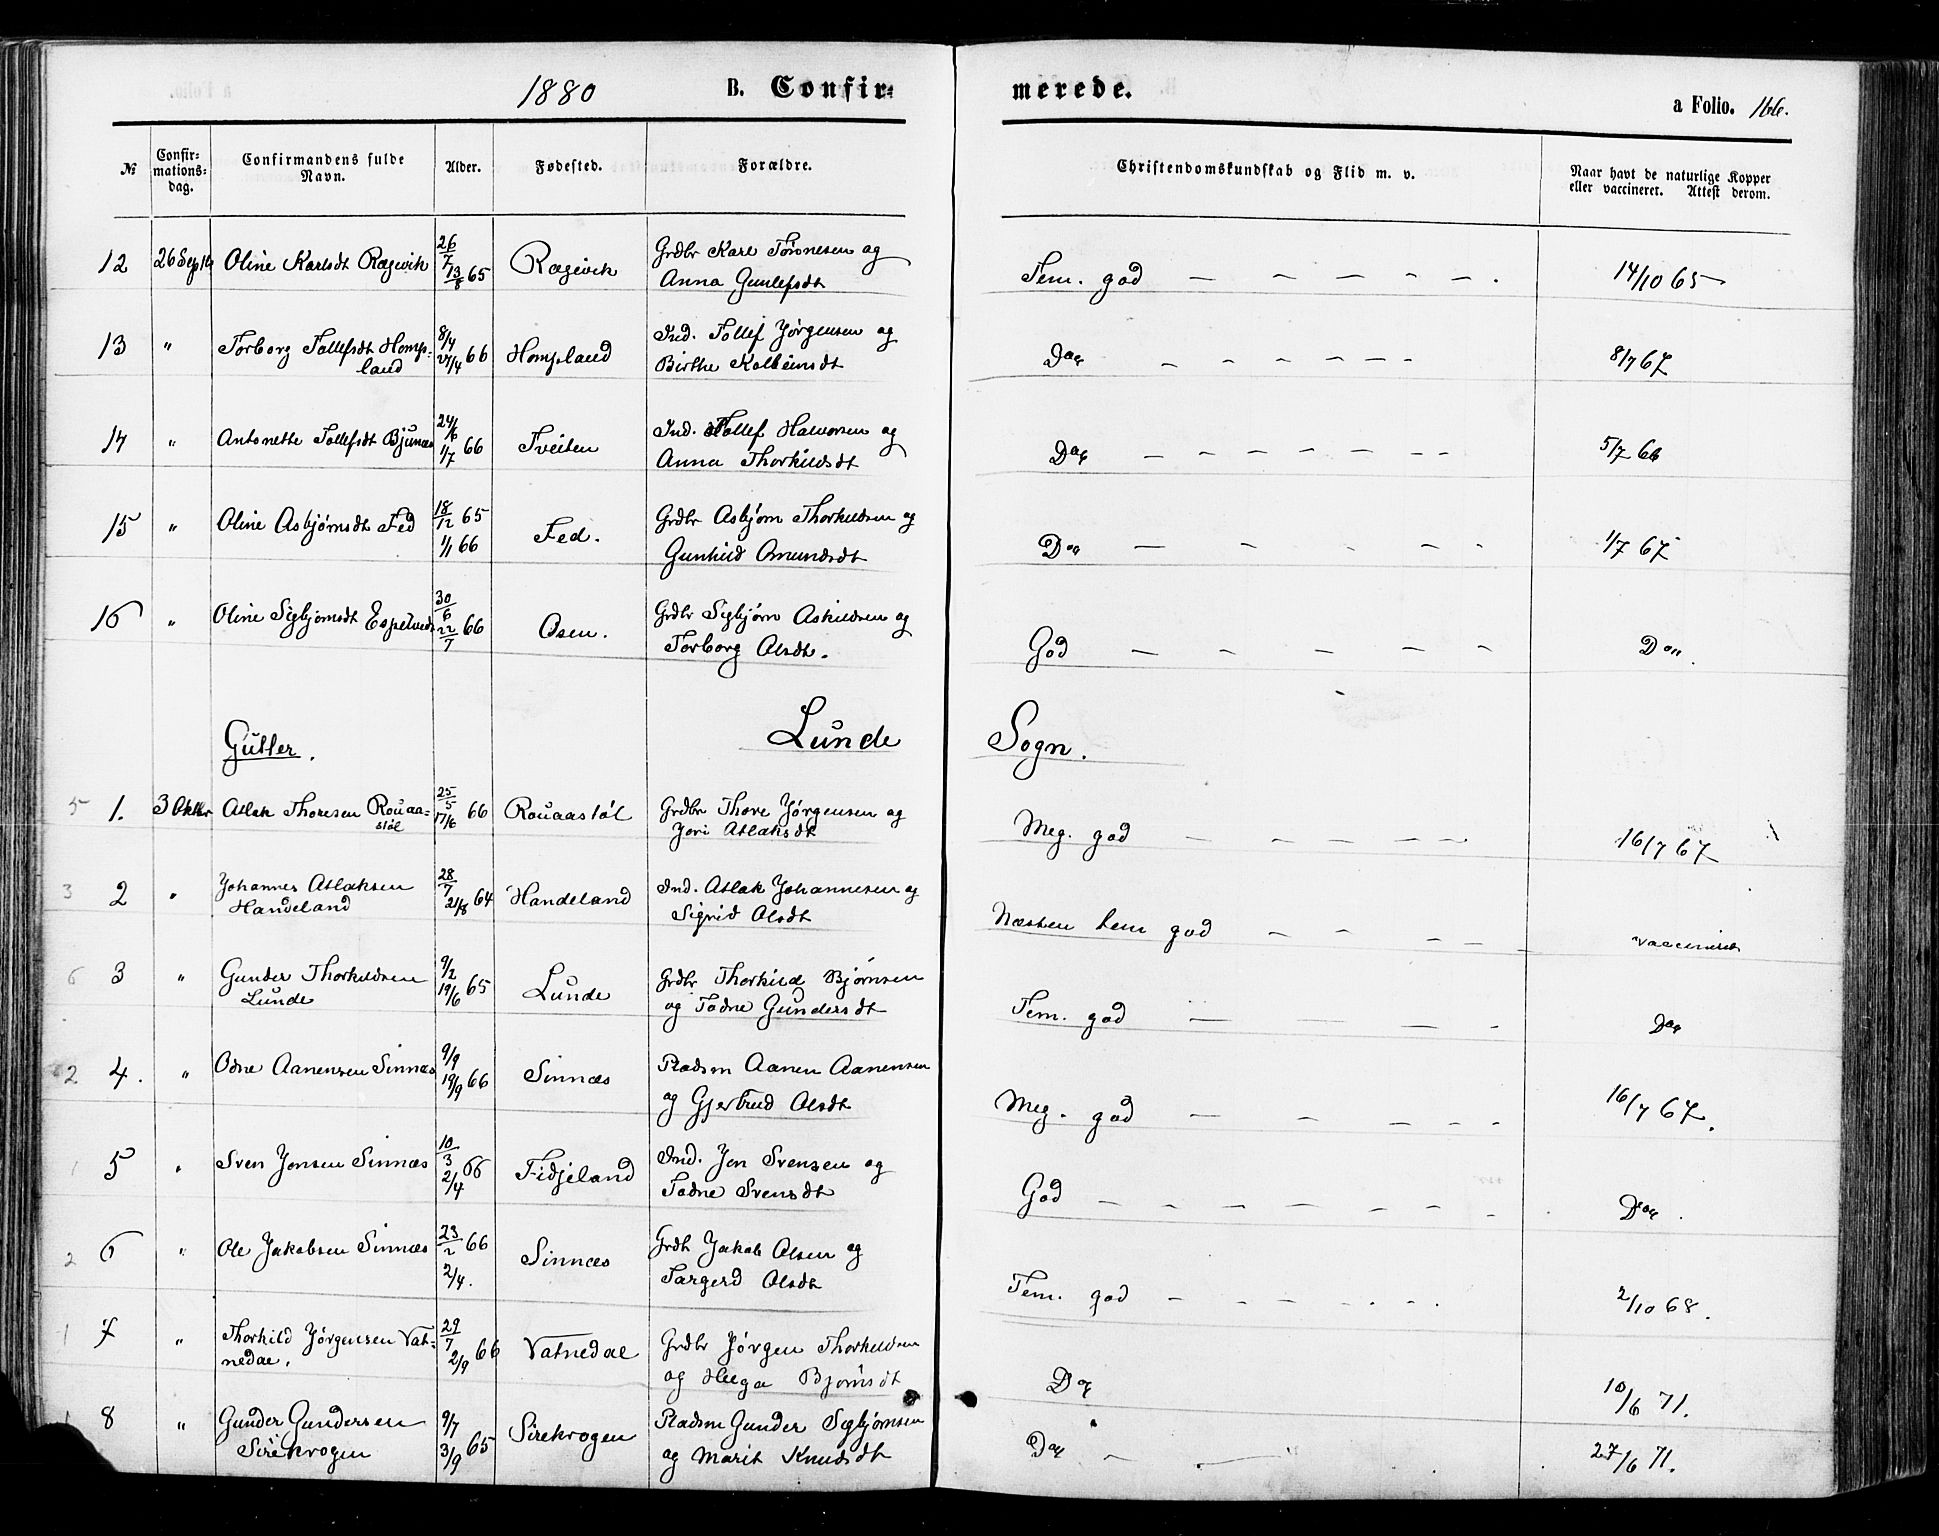 1880 B. Confir= merede. a Folio. 166.
№ Confir=mations=dag. Confirmandens fulde Navn. Alder. Fødested. Forældre. Christendomskundskab og Flid m. v. Naar havt de naturlige Kopper eller vaccineret. Attest derom.
12 26 Septb Oline Karlsdt Rægevik 26/7 13/8 65 Rægevik Grdbr Karl Tørresen og
Anna Gunlefsdt Tem. god — — — — — . 14/10 65
13 " Torborg Tollefsdt Homp= 8/4 27/4 66 Hompland Ind. Tollef Jørgensen og
land Birthe Kolbeinsdt Do — — — — — — 8/7 67
14 " Antonette Tollefsdt Bjunes 24/6 1/7 66 Tveiten Ind. Tollef Halvorsen og
Anna Thorkildsdt Do — — — — — — — 5/7 66
15 " Oline Asbjørnsdt Fed 18/12 65 Fed. Grdbr Asbjørn Thorkildsen og
1/1 66 Gunhild Omundsdt Do — — - — - 1/7 67
16 " Oline Sigbjørnsdt Espetvedt 30/6 22/7 66 Osen. Grdbr Sigbjørn Askildsen og
Torborg Olsdt. God — — — — — Do.
Gutter. Lunde Sogn.
5 1. 3 Oktbr Atlak Thoresen Rouaa= 25/5 17/6 66 Rouaastøl Grdbr Thore Jørgensen og
støl Jori Atlaksdt Meg. god — — — — — 16/7 67
3 2 " Johannes Atlaksen 28/7 21/8 64 Handeland Ind. Atlak Johannesen og
Handeland Sigrid Olsdt Næsten tem god — — — — — vaccineret
6 3 " Gunder Thorkildsen 9/2 19/6 65 Lunde Grdbr Thorkild Bjørnsen
Lunde og Todne Gundersdt Tem. god — — — - Do
2 4. " Odne Aanensen Sinnæs 9/9 19/9 66 Sinnæs Pladsm Aanen Aanensen
og Gjertrud Olsdt Meg. god — — — - - 16/7 67.
1 5 " Sven Jonsen Sinnæs 10/3 2/4 66 Fidjeland Ind. Jon Svensen og
Todne Svensdt God — — — — — — - Do.
2 6 " Ole Jakobsen Sinnæs 23/2 66 Sinnæs Grdb Jakob Olsen og
2/4. Targerd Olsdt Tem. god — - - . - . 2/10 68.
1 7 " Thorkild Jørgensen Vat= 29/7 2/9 66 Vatnedal Grdbr Jørgen Thorkildsen
nedal. og Helga Bjørnsdt Do 10/6 71.
1 8 " Gunder Gundersen 9/7 3/9 65 Sirekrogen Pladsm Gunder Sigbjørnsen
Sirekrogen og Marit Knudsdt Do — 27/6 71.